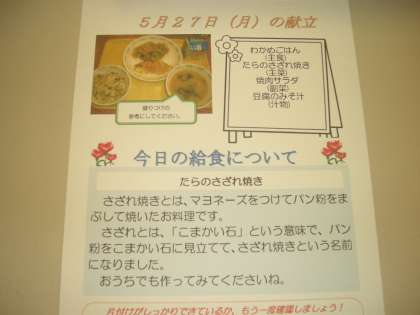 5月27日(月)の献立
わかめごはん
(主食)
たらのさざれ焼き
(主菜)
焼肉サラダ
(副菜)
豆腐のみそ汁
(汁物)
盛りつけの
参考にしてください。
今日の給食について
たらのさざれ焼き
さざれ焼きとは、マヨネーズをつけてパン粉をま
ぶして焼いたお料理です。
さざれとは、「こまかい石」という意味で、パン
粉をこまかい石に見立てて、さざれ焼きという名前
になりました。
おうちでも作ってみてくださいね。
片付けがしっかりできているか、もう一度確認しましょう!